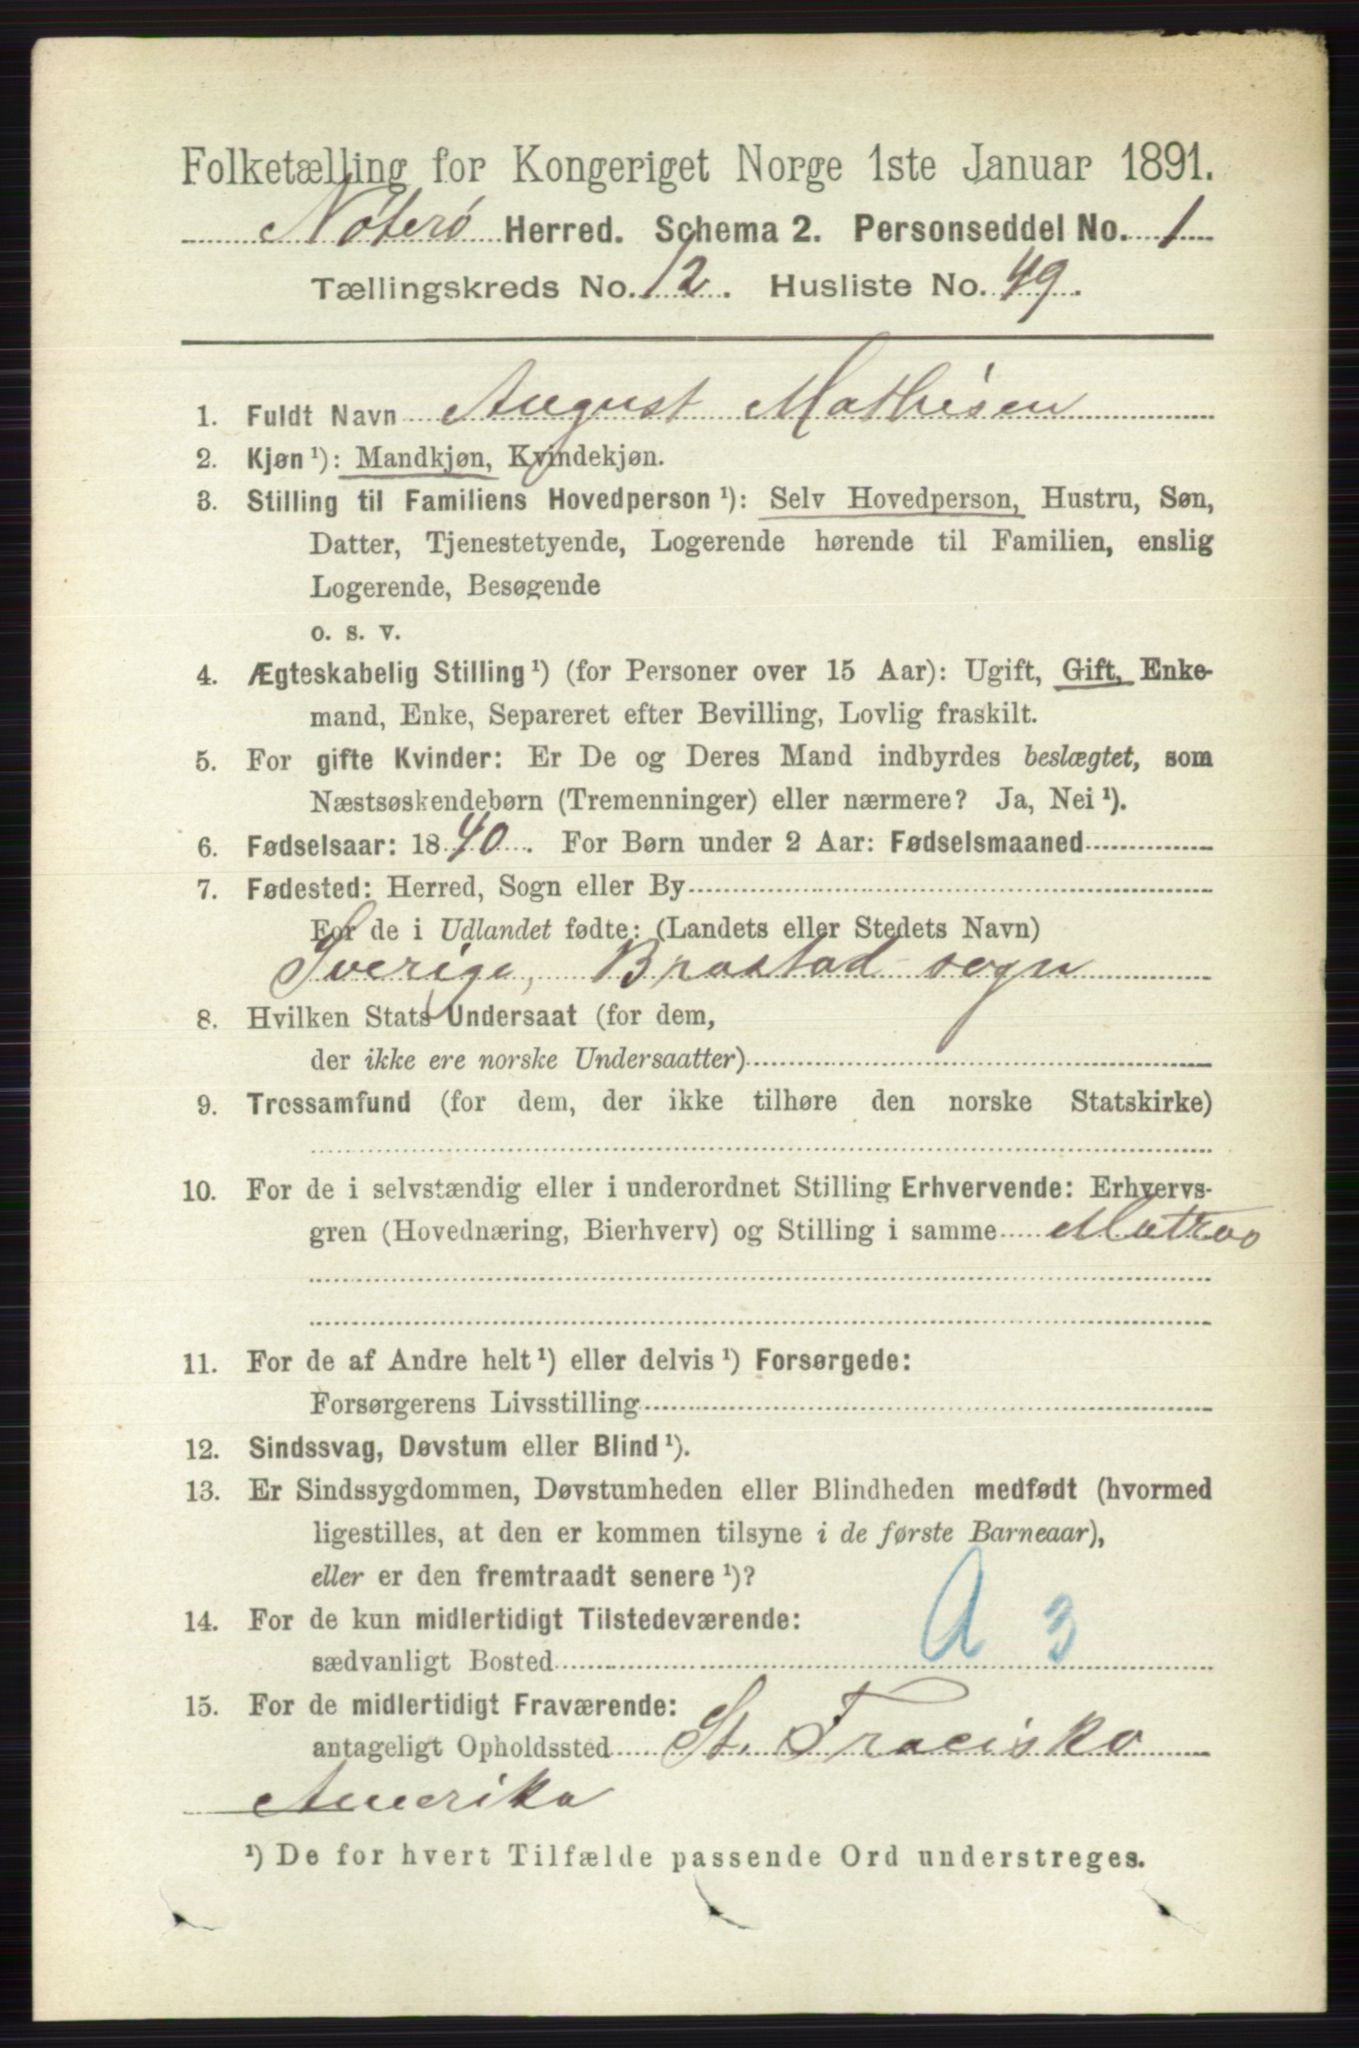 Folketælling for Kongeriget Norge 1ste Januar 1891.
Nøterø Herred. Schema 2. Personseddel No. 1
Tællingskreds No. 12. Husliste No. 49.
1. Fuldt Navn August Mathisen
2. Kjøn¹): Mandkjøn, Kvindekjøn.
3. Stilling til Familiens Hovedperson¹): Selv Hovedperson, Hustru, Søn,
Datter, Tjenestetyende, Logerende hørende til Familien, enslig
Logerende, Besøgende
o. s. v.
4. Ægteskabelig Stilling¹) (for Personer over 15 Aar): Ugift, Gift, Enke-
mand, Enke, Separeret efter Bevilling, Lovlig fraskilt.
5. For gifte Kvinder: Er De og Deres Mand indbyrdes beslægtet, som
Næstsøskendebørn (Tremenninger) eller nærmere? Ja, Nei¹).
6. Fødselsaar: 1840. For Børn under 2 Aar: Fødselsmaaned
7. Fødested: Herred, Sogn eller By
For de i Udlandet fødte: (Landets eller Stedets Navn)
Sverige, Brastad sogn
8. Hvilken Stats Undersaat (for dem,
der ikke ere norske Undersaatter)
9. Trossamfund (for dem, der ikke tilhøre den norske Statskirke)
10. For de i selvstændig eller i underordnet Stilling Erhvervende: Erhvervs-
gren (Hovednæring, Bierhverv) og Stilling i samme Matros
11. For de af Andre helt¹) eller delvis¹) Forsørgede:
Forsørgerens Livsstilling
12. Sindssvag, Døvstum eller Blind¹).
13. Er Sindssygdommen, Døvstumheden eller Blindheden medfødt (hvormed
ligestilles, at den er kommen tilsyne i de første Barneaar),
eller er den fremtraadt senere¹)?
14. For de kun midlertidigt Tilstedeværende:
sædvanligt Bosted A 3
15. For de midlertidigt Fraværende:
antageligt Opholdssted St. Fracisko
Amerika
¹) De for hvert Tilfælde passende Ord understreges.